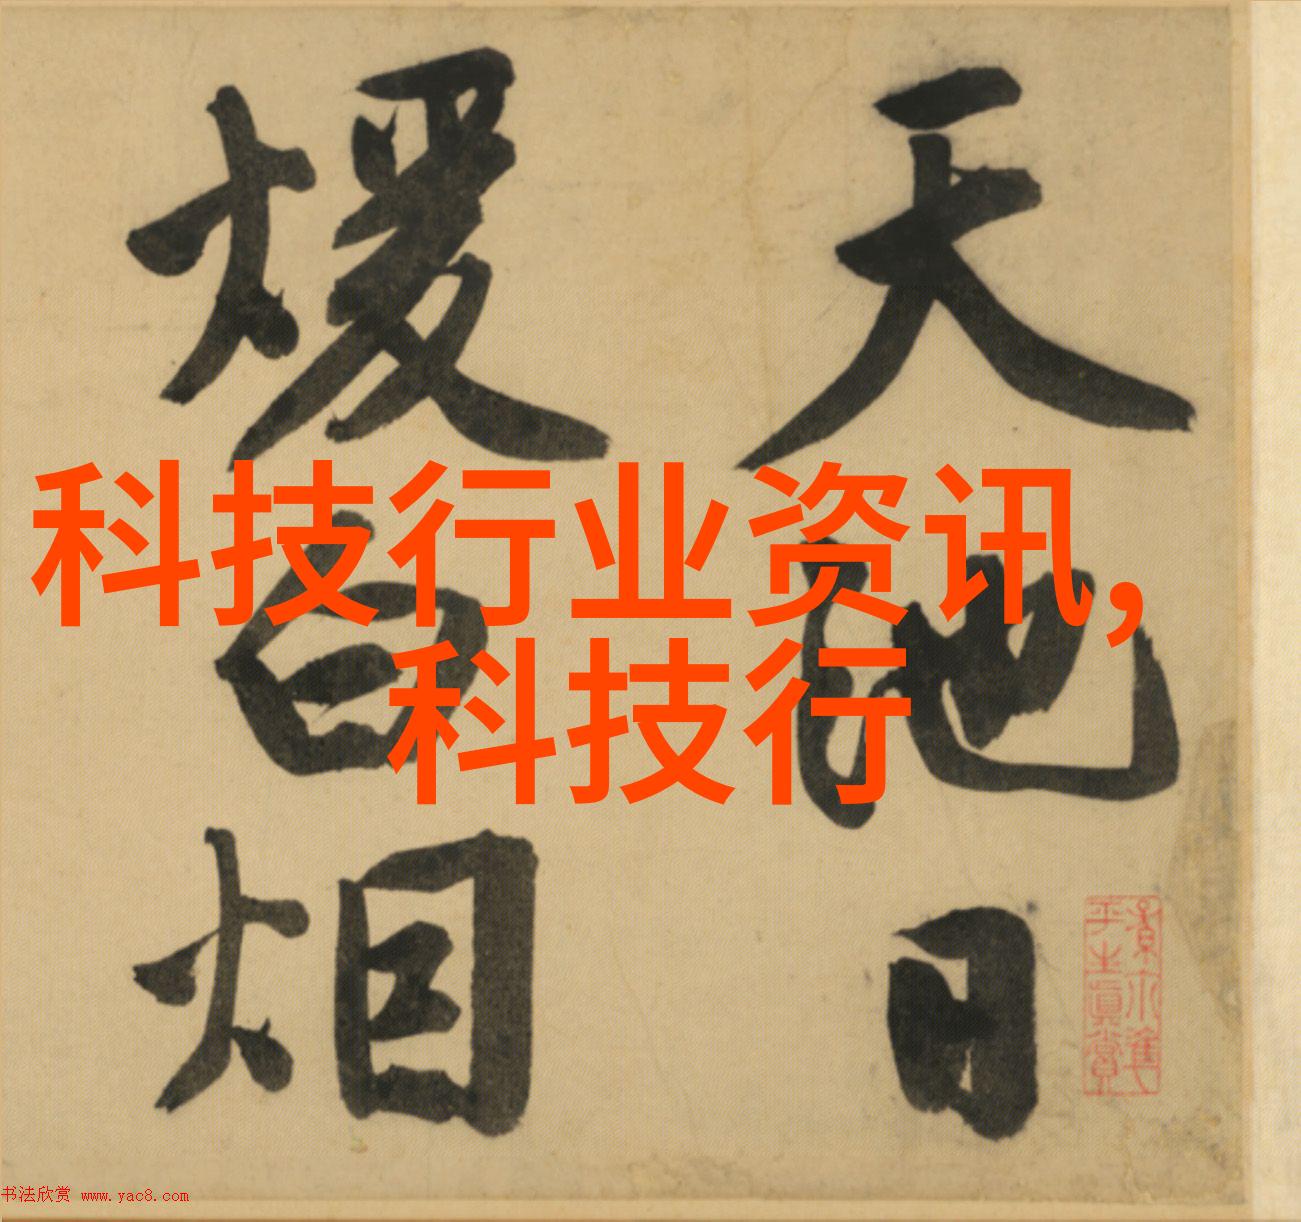 天地日
煖白
科技行业资讯,
科技行
书法欣赏 www.yac8.com